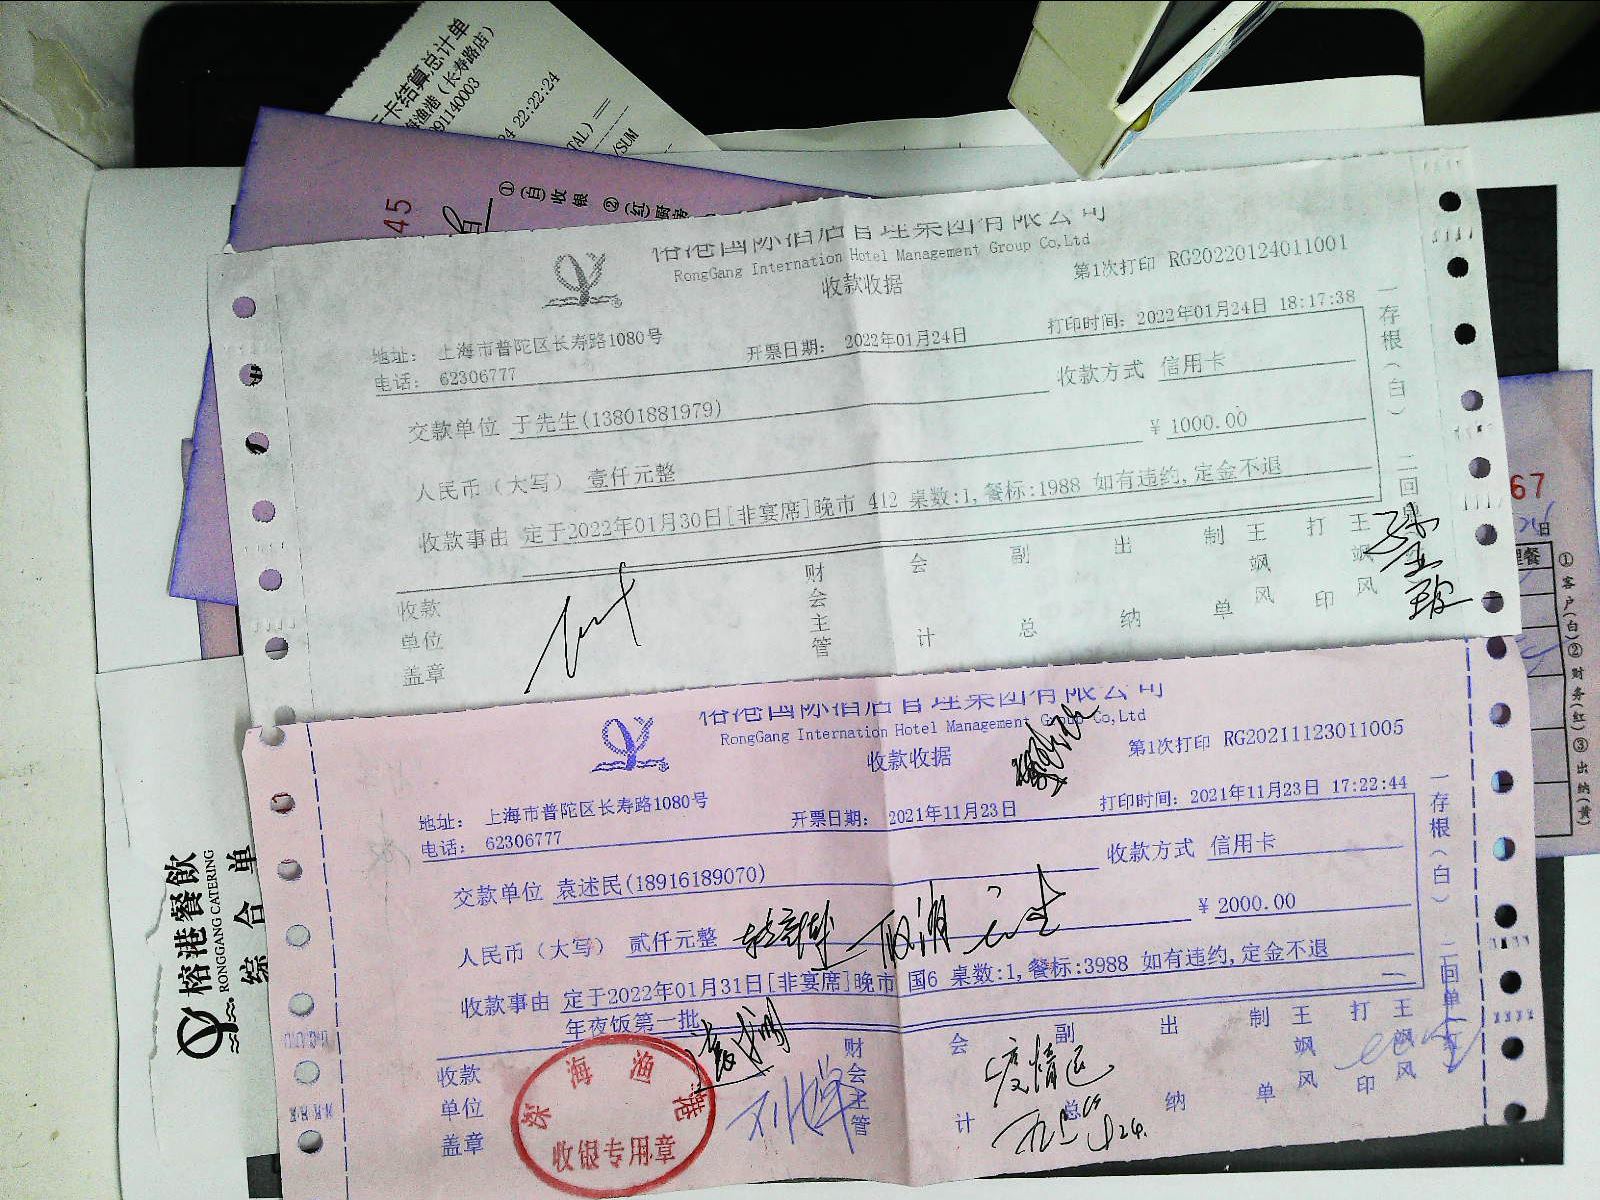 卡结算总计单
海渔港（长寿路店）
991140003
24 22:22:24
TAL)
/SUM
45
①(白)收银 ②(红)厨房
榕港国际酒店管理集团有限公司
RongGang Internation Hotel Management Group Co,Ltd
收款收据
第1次打印 RG20220124011001
地址： 上海市普陀区长寿路1080号
电话： 62306777
开票日期： 2022年01月24日
打印时间：2022年01月24日 18:17:38
交款单位 于先生(13801881979)
收款方式 信用卡
人民币（大写） 壹仟元整
¥ 1000.00
收款事由 定于2022年01月30日[非宴席]晚市 412 桌数:1,餐标:1988 如有违约,定金不退
收款单位盖章
财会主管
会计
副总
出纳
制单
王飒风
打印
王飒风
一存根（白） 二回单
榕港国际酒店管理集团有限公司
RongGang Internation Hotel Management Group Co,Ltd
收款收据
第1次打印 RG20211123011005
地址： 上海市普陀区长寿路1080号
电话： 62306777
开票日期： 2021年11月23日
打印时间：2021年11月23日 17:22:44
交款单位 袁述民(18916189070)
收款方式 信用卡
人民币（大写） 贰仟元整
¥ 2000.00
收款事由 定于2022年01月31日[非宴席]晚市 国6 桌数:1,餐标:3988 如有违约,定金不退
年夜饭第一批
收款单位盖章
财会主管
会计
副总
出纳
制单
王飒风
打印
王飒风
一存根（白） 二回单（红）
深海渔港
收银专用章
疫情退
榕港餐飲
RONGGANG CATERING
综合单
67
日
①客户(白)②财务(红)③出纳(黄)